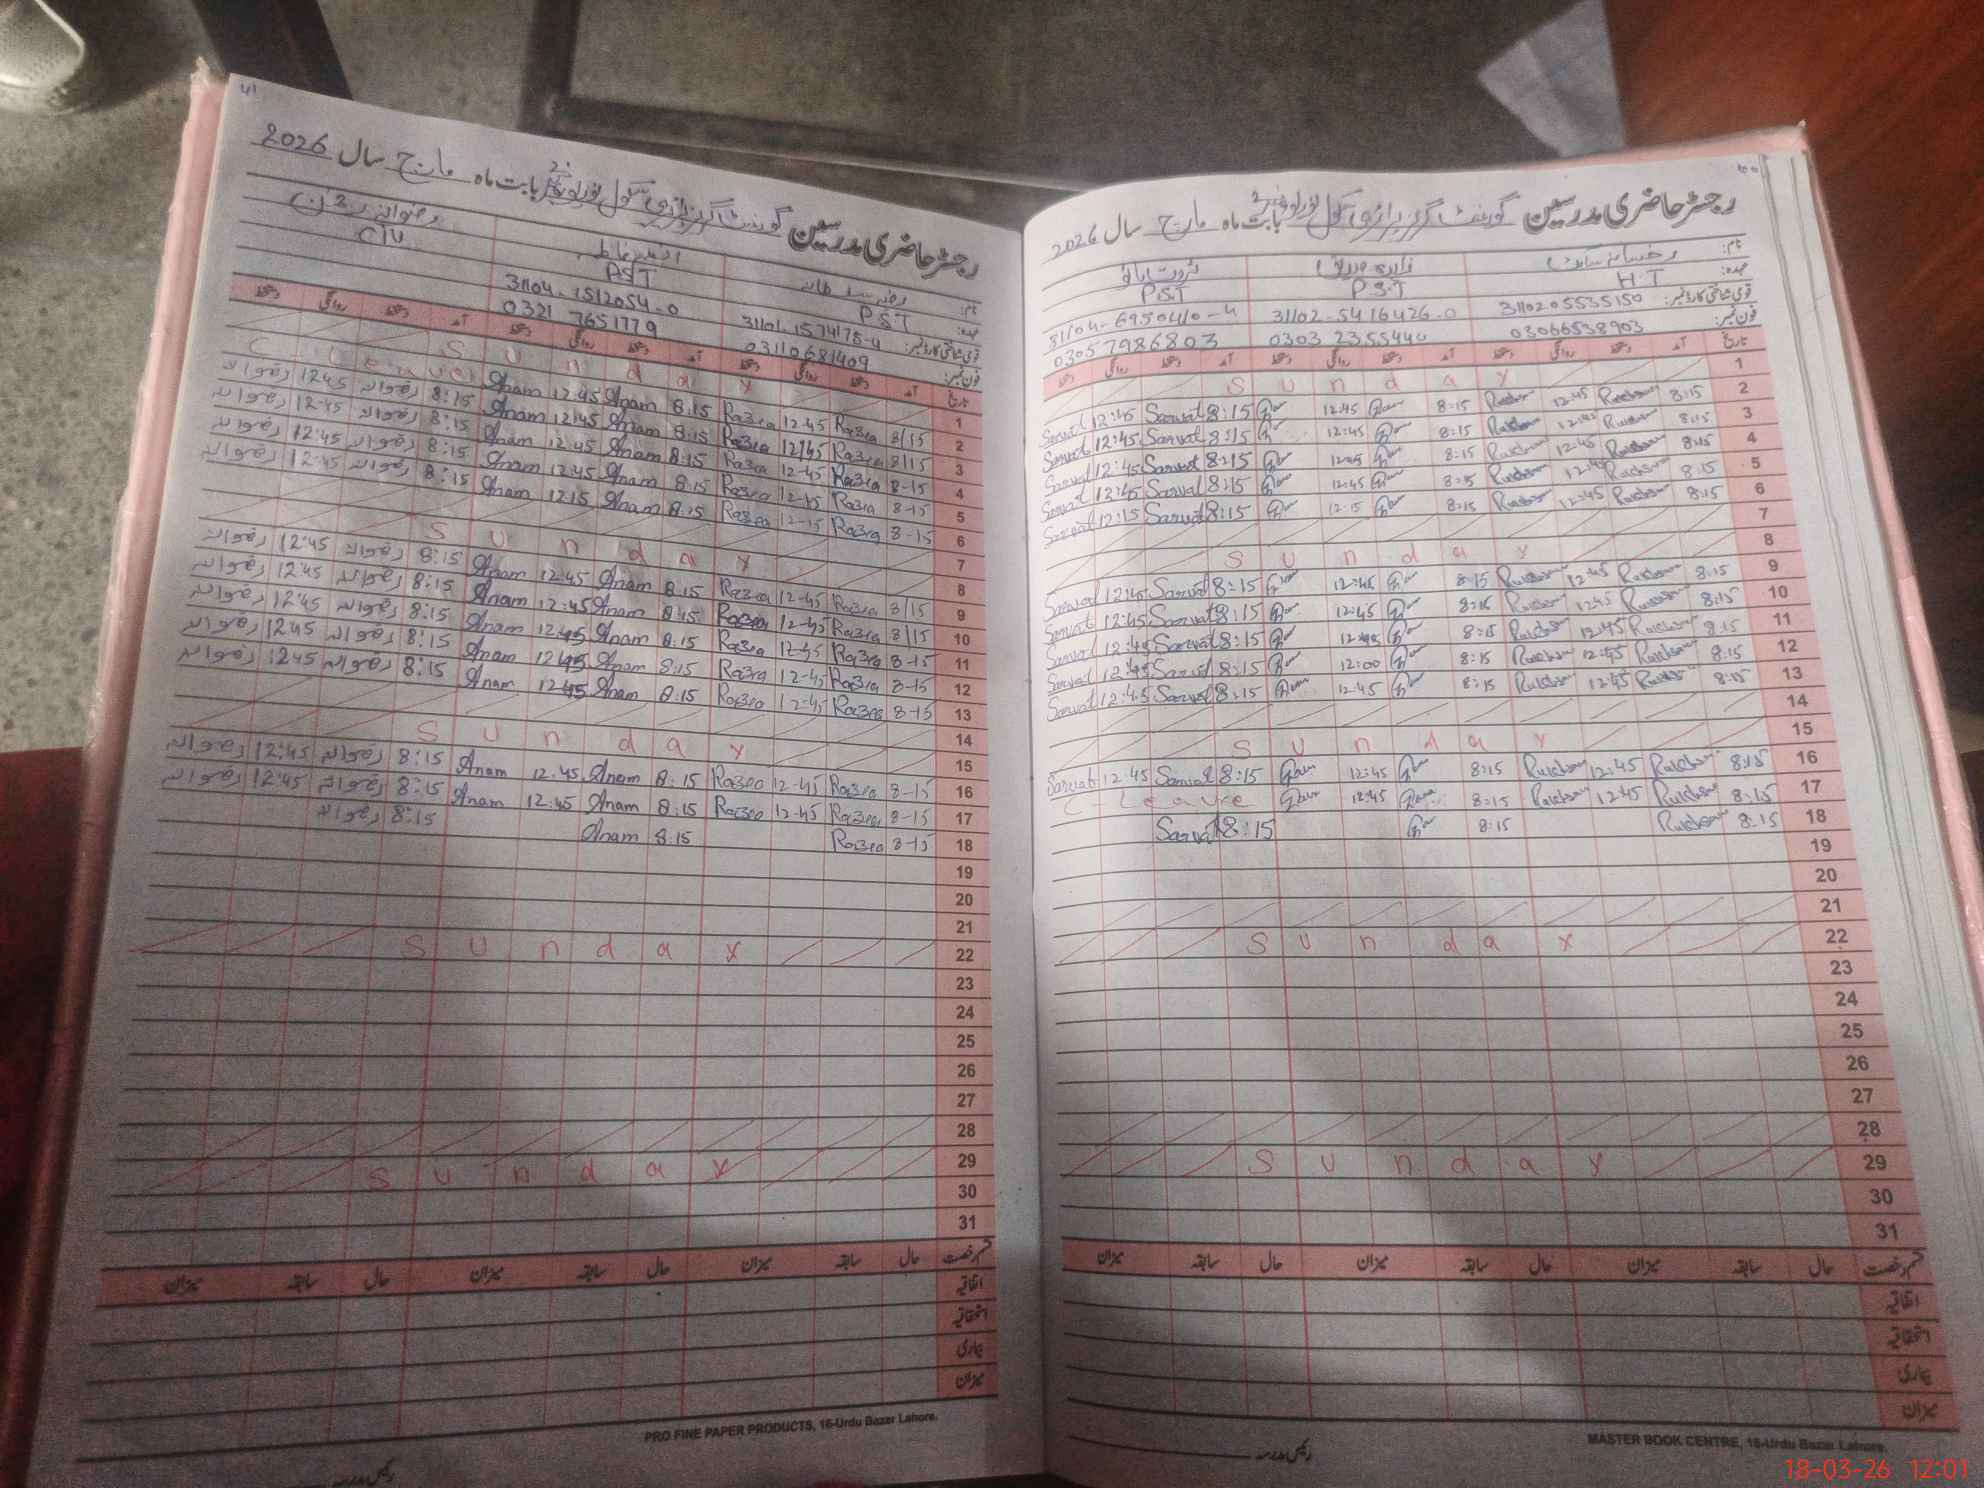 رجسٹر حاضری مدرسین گورنمنٹ گرلز پرائمری سکول بابت ماہ مارچ سال 2026
نام:
عہدہ: H.T P.S.T P.S.T
قومی شناختی کارڈ نمبر: 3110205535150 31102-5416426-0
فون نمبر: 03066538903 0303 2355440 03057986803
تاریخ آمد دستخط روانگی دستخط آمد دستخط روانگی دستخط آمد دستخط روانگی دستخط
1 Sunday
2 8:15 Rukhsar 12:45 Rukhsar 8:15 12:45 8:15 Sarwat 12:45 Sarwat
3 8:15 Rukhsar 12:45 Rukhsar 8:15 12:45 8:15 Sarwat 12:45 Sarwat
4 8:15 Rukhsar 12:45 Rukhsar 8:15 12:45 8:15 Sarwat 12:45 Sarwat
5 8:15 Rukhsar 12:45 Rukhsar 8:15 12:45 8:15 Sarwat 12:45 Sarwat
6 8:15 Rukhsar 12:45 Rukhsar 8:15 12:15 8:15 Sarwat 12:15 Sarwat
7
8 Sunday
9 8:15 Rukhsar 12:45 Rukhsar 8:15 12:45 8:15 Sarwat 12:45 Sarwat
10 8:15 Rukhsar 12:45 Rukhsar 8:15 12:45 8:15 Sarwat 12:45 Sarwat
11 8:15 Rukhsar 12:45 Rukhsar 8:15 12:45 8:15 Sarwat 12:45 Sarwat
12 8:15 Rukhsar 12:45 Rukhsar 8:15 12:00 8:15 Sarwat 12:45 Sarwat
13 8:15 Rukhsar 12:45 Rukhsar 8:15 12:45 8:15 Sarwat 12:45 Sarwat
14
15 Sunday
16 8:15 Rukhsar 12:45 Rukhsar 8:15 12:45 8:15 Sarwat 12:45 Sarwat
17 8:15 Rukhsar 12:45 Rukhsar 8:15 12:45 C-Leave
18 8:15 Rukhsar 8:15 8:15 Sarwat
19
20
21
22 Sunday
23
24
25
26
27
28
29 Sunday
30
31
قسم رخصت حال سابقہ میزان حال سابقہ میزان حال سابقہ میزان
اتفاقیہ
استحقاقیہ
بیماری
میزان
MASTER BOOK CENTRE, 16-Urdu Bazar Lahore.
رئیس مدرسہ
41
رجسٹر حاضری مدرسین گورنمنٹ گرلز پرائمری سکول بابت ماہ مارچ سال 2026
نام:
عہدہ: P.S.T PST C IV
قومی شناختی کارڈ نمبر: 31101-1574178-4 31104-1512054-0
فون نمبر: 03110681409 0321 7651779
تاریخ آمد دستخط روانگی دستخط آمد دستخط روانگی دستخط آمد دستخط روانگی دستخط
1 Sunday
2 8/15 Razia 12-45 Razia 8:15 Anam 12:45 Anam C-Leave
3 8/15 Razia 12/45 Razia 8:15 Anam 12:45 Anam 8:15 رضوانہ 12:45 رضوانہ
4 8-15 Razia 12-45 Razia 8:15 Anam 12:45 Anam 8:15 رضوانہ 12:45 رضوانہ
5 8-15 Razia 12-45 Razia 8:15 Anam 12:45 Anam 8:15 رضوانہ 12:45 رضوانہ
6 8-15 Razia 12-15 Razia 8:15 Anam 12:15 Anam 8:15 رضوانہ 12:45 رضوانہ
7
8 Sunday
9 8/15 Razia 12-45 Razia 8:15 Anam 12:45 Anam 8:15 رضوانہ 12:45 رضوانہ
10 8/15 Razia 12-45 Razia 8:15 Anam 12:45 Anam 8:15 رضوانہ 12:45 رضوانہ
11 8-15 Razia 12-45 Razia 8:15 Anam 12:45 Anam 8:15 رضوانہ 12:45 رضوانہ
12 8-15 Razia 12-45 Razia 8:15 Anam 12:45 Anam 8:15 رضوانہ 12:45 رضوانہ
13 8-15 Razia 12-45 Razia 8:15 Anam 12:45 Anam 8:15 رضوانہ 12:45 رضوانہ
14
15 Sunday
16 8-15 Razia 12-45 Razia 8:15 Anam 12:45 Anam 8:15 رضوانہ 12:45 رضوانہ
17 8-15 Razia 12-45 Razia 8:15 Anam 12:45 Anam 8:15 رضوانہ 12:45 رضوانہ
18 8-15 Razia 8:15 Anam 8:15 رضوانہ
19
20
21
22 Sunday
23
24
25
26
27
28
29 Sunday
30
31
قسم رخصت حال سابقہ میزان حال سابقہ میزان حال سابقہ میزان
اتفاقیہ
استحقاقیہ
بیماری
میزان
PRO FINE PAPER PRODUCTS, 16-Urdu Bazar Lahore.
رئیس مدرسہ
18-03-26 12:01